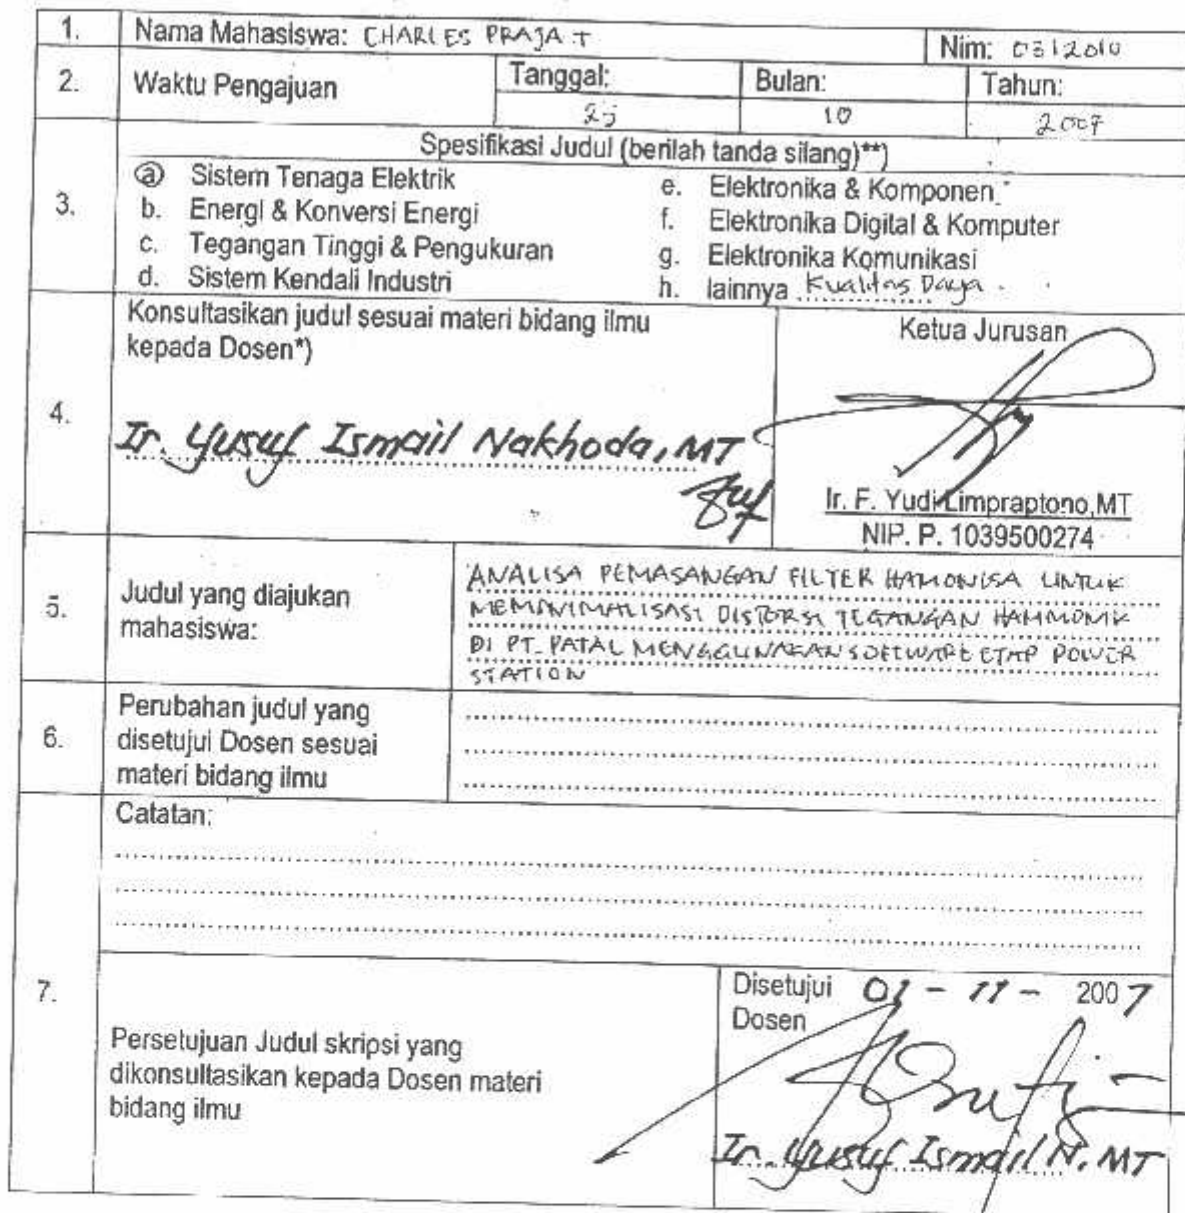 1. Nama Mahasiswa: CHARLES PRAJA T Nim: 0312010
2. Waktu Pengajuan Tanggal: Bulan: Tahun:
25 10 2007
Spesifikasi Judul (berilah tanda silang)**)
3.
a Sistem Tenaga Elektrik
b. Energi & Konversi Energi
c. Tegangan Tinggi & Pengukuran
d. Sistem Kendali Industri
e. Elektronika & Komponen
f. Elektronika Digital & Komputer
g. Elektronika Komunikasi
h. lainnya Kualitas Daya
4.
Konsultasikan judul sesuai materi bidang ilmu
kepada Dosen*)
Ir. Yusuf Ismail Nakhoda, MT
Ketua Jurusan
Ir. F. Yudi Limpraptono,MT
NIP. P. 1039500274
5.
Judul yang diajukan
mahasiswa:
ANALISA PEMASANGAN FILTER HAMONISA UNTUK
MEMINIMALISASI DISTORSI TEGANGAN HAMMONIK
DI PT. PATAL MENGGUNAKAN SOFTWARE ETAP POWER
STATION
6.
Perubahan judul yang
disetujui Dosen sesuai
materi bidang ilmu
Catatan:
7.
Persetujuan Judul skripsi yang
dikonsultasikan kepada Dosen materi
bidang ilmu
Disetujui 01 - 11 - 2007
Dosen
Ir. Yusuf Ismail N. MT